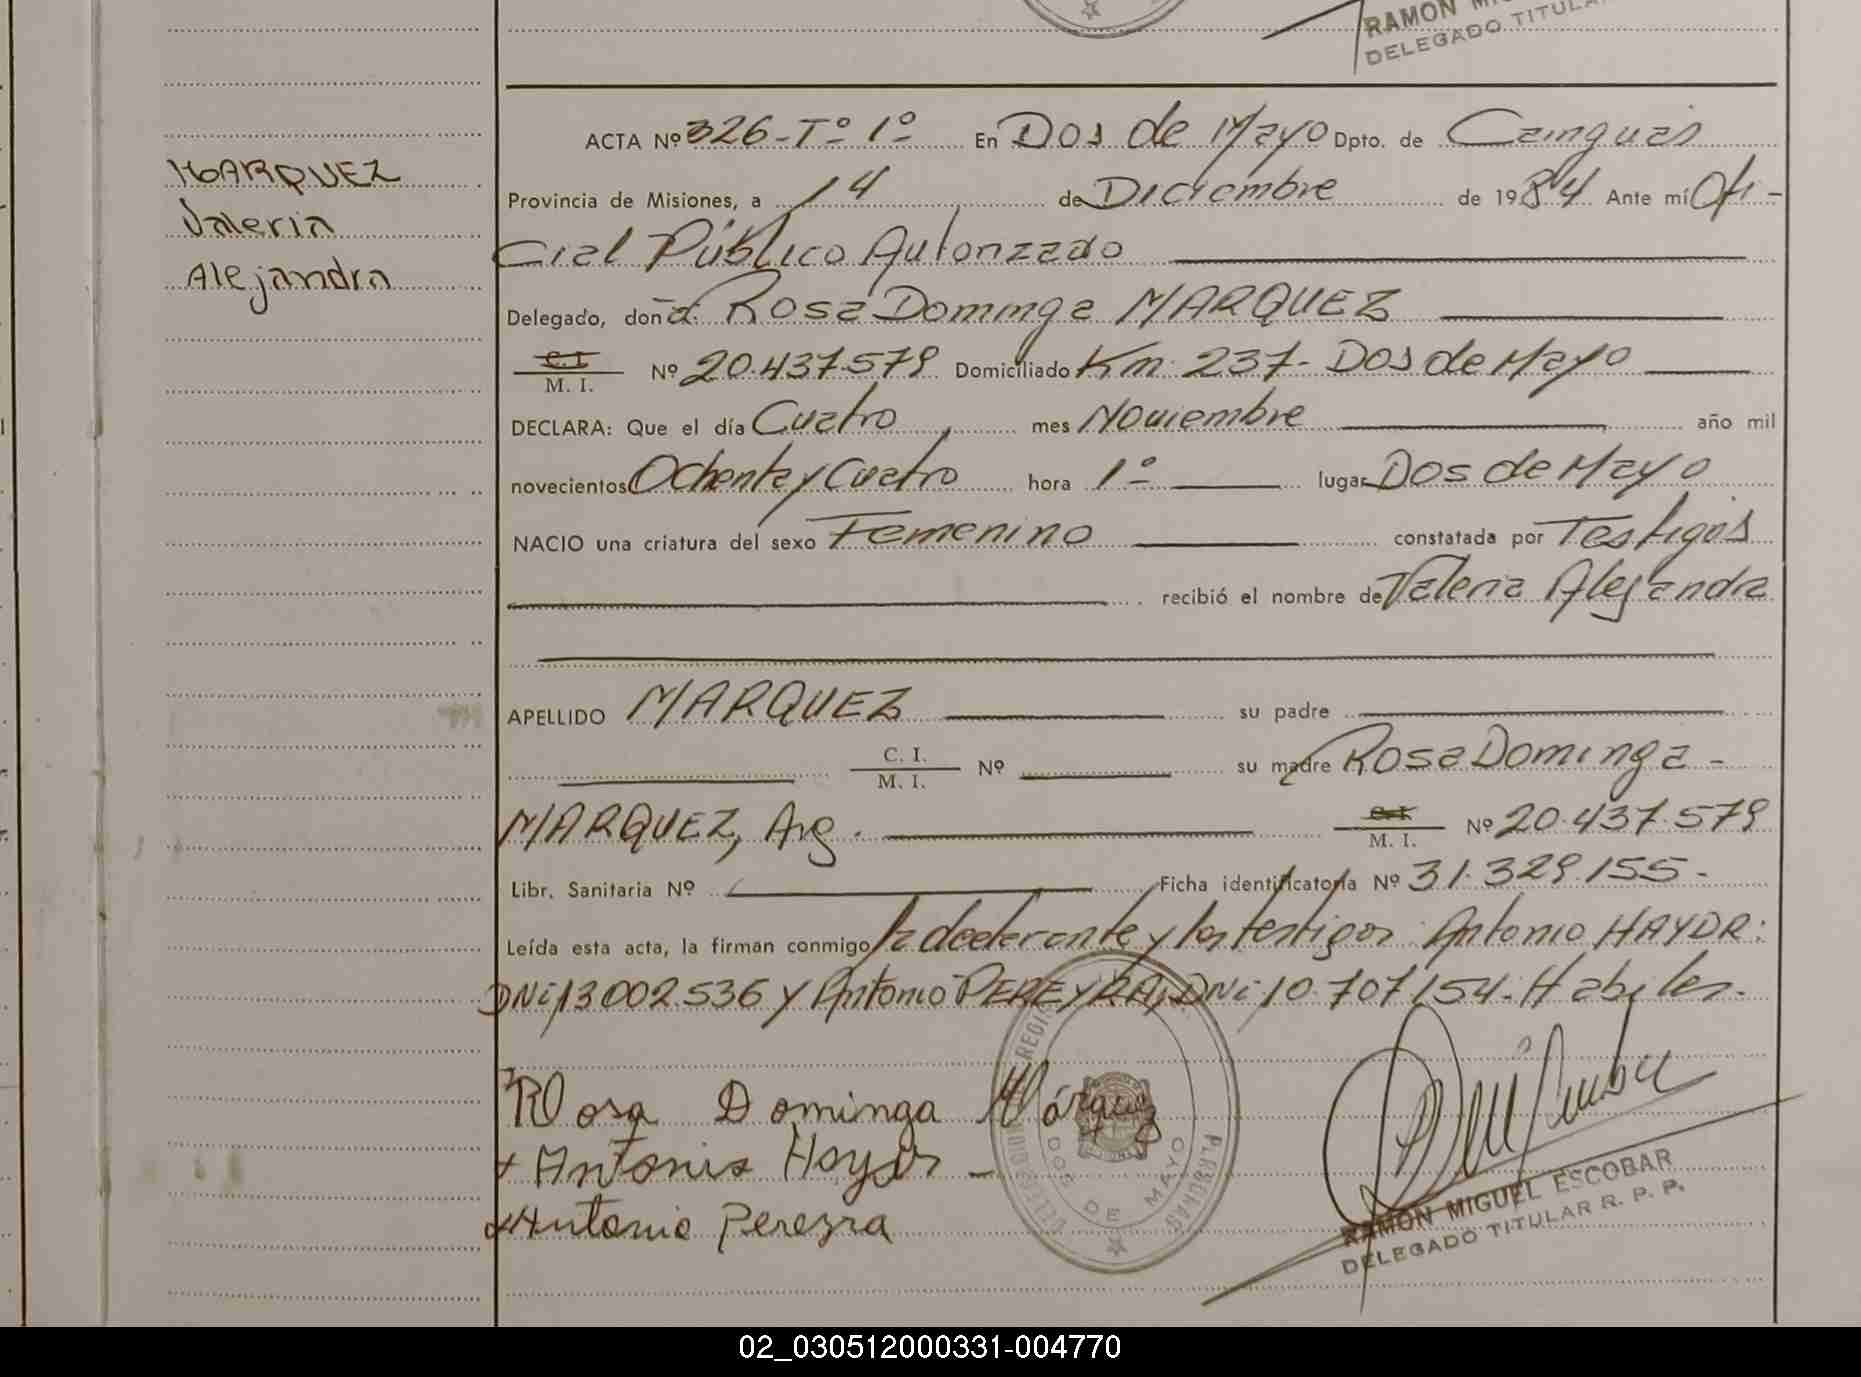 RAMON MI
DELEGADO TITULA
MARQUEZ
Valeria
Alejandra
ACTA Nº 326-Tº 1º- En Dos de Mayo Dpto. de Cainguás
Provincia de Misiones, a 14 de Diciembre de 1984 Ante mí Ofi-
cial Público Autorizado
Delegado, doña Rosa Dominga MARQUEZ
C.I.
M. I. Nº 20.437.579 Domiciliado Km. 237- Dos de Mayo
DECLARA: Que el día Cuatro mes Noviembre año mil
novecientos Ochenta y Cuatro hora 1º- lugar Dos de Mayo
NACIO una criatura del sexo Femenino constatada por Testigos
recibió el nombre de Valeria Alejandra
APELLIDO MARQUEZ su padre
C. I.
M. I. Nº su madre Rosa Dominga -
MARQUEZ, Arg. C.I.
M. I. Nº 20.437.579
Libr. Sanitaria Nº Ficha identificatoria Nº 31.329.155-
Leída esta acta, la firman conmigo la declarante y los testigos: Antonio HAYDR:
DNi 13.002.536 y Antonio PEREYRA, DNi 10.707.154. Habiles.
Rosa Dominga Márquez
+ Antonio Haydr -
Antonio Pereyra
DOS DE MAYO
RAMON MIGUEL ESCOBAR
DELEGADO TITULAR R. P. P.
02_030512000331-004770